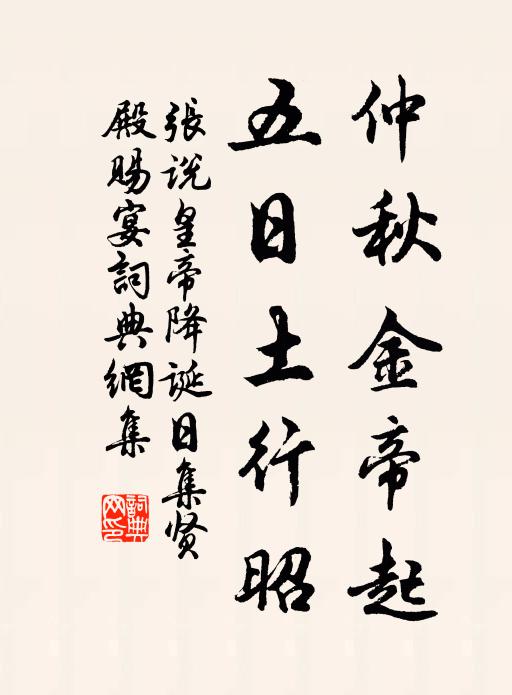 仲秋金帝起
五日土行昭
張说皇帝降誕日集贤
殿賜宴詞典網集
詞典网印